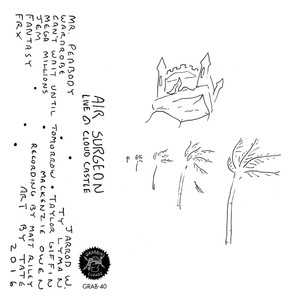 AIR SURGEON
LIVE @ CLOUD CASTLE
MR PEABODY
WARDROBE
CAN'T WAIT UNTIL TOMORROW
MEGA MILLIONS
JEM
FANTASY
FRX
JARROD W.
TY LYMAN
TAYLOR GIFFIN
MACKENZIE OWEN
RECORDING BY MATT RILEY
ART BY TATE
2016
GRAB-40